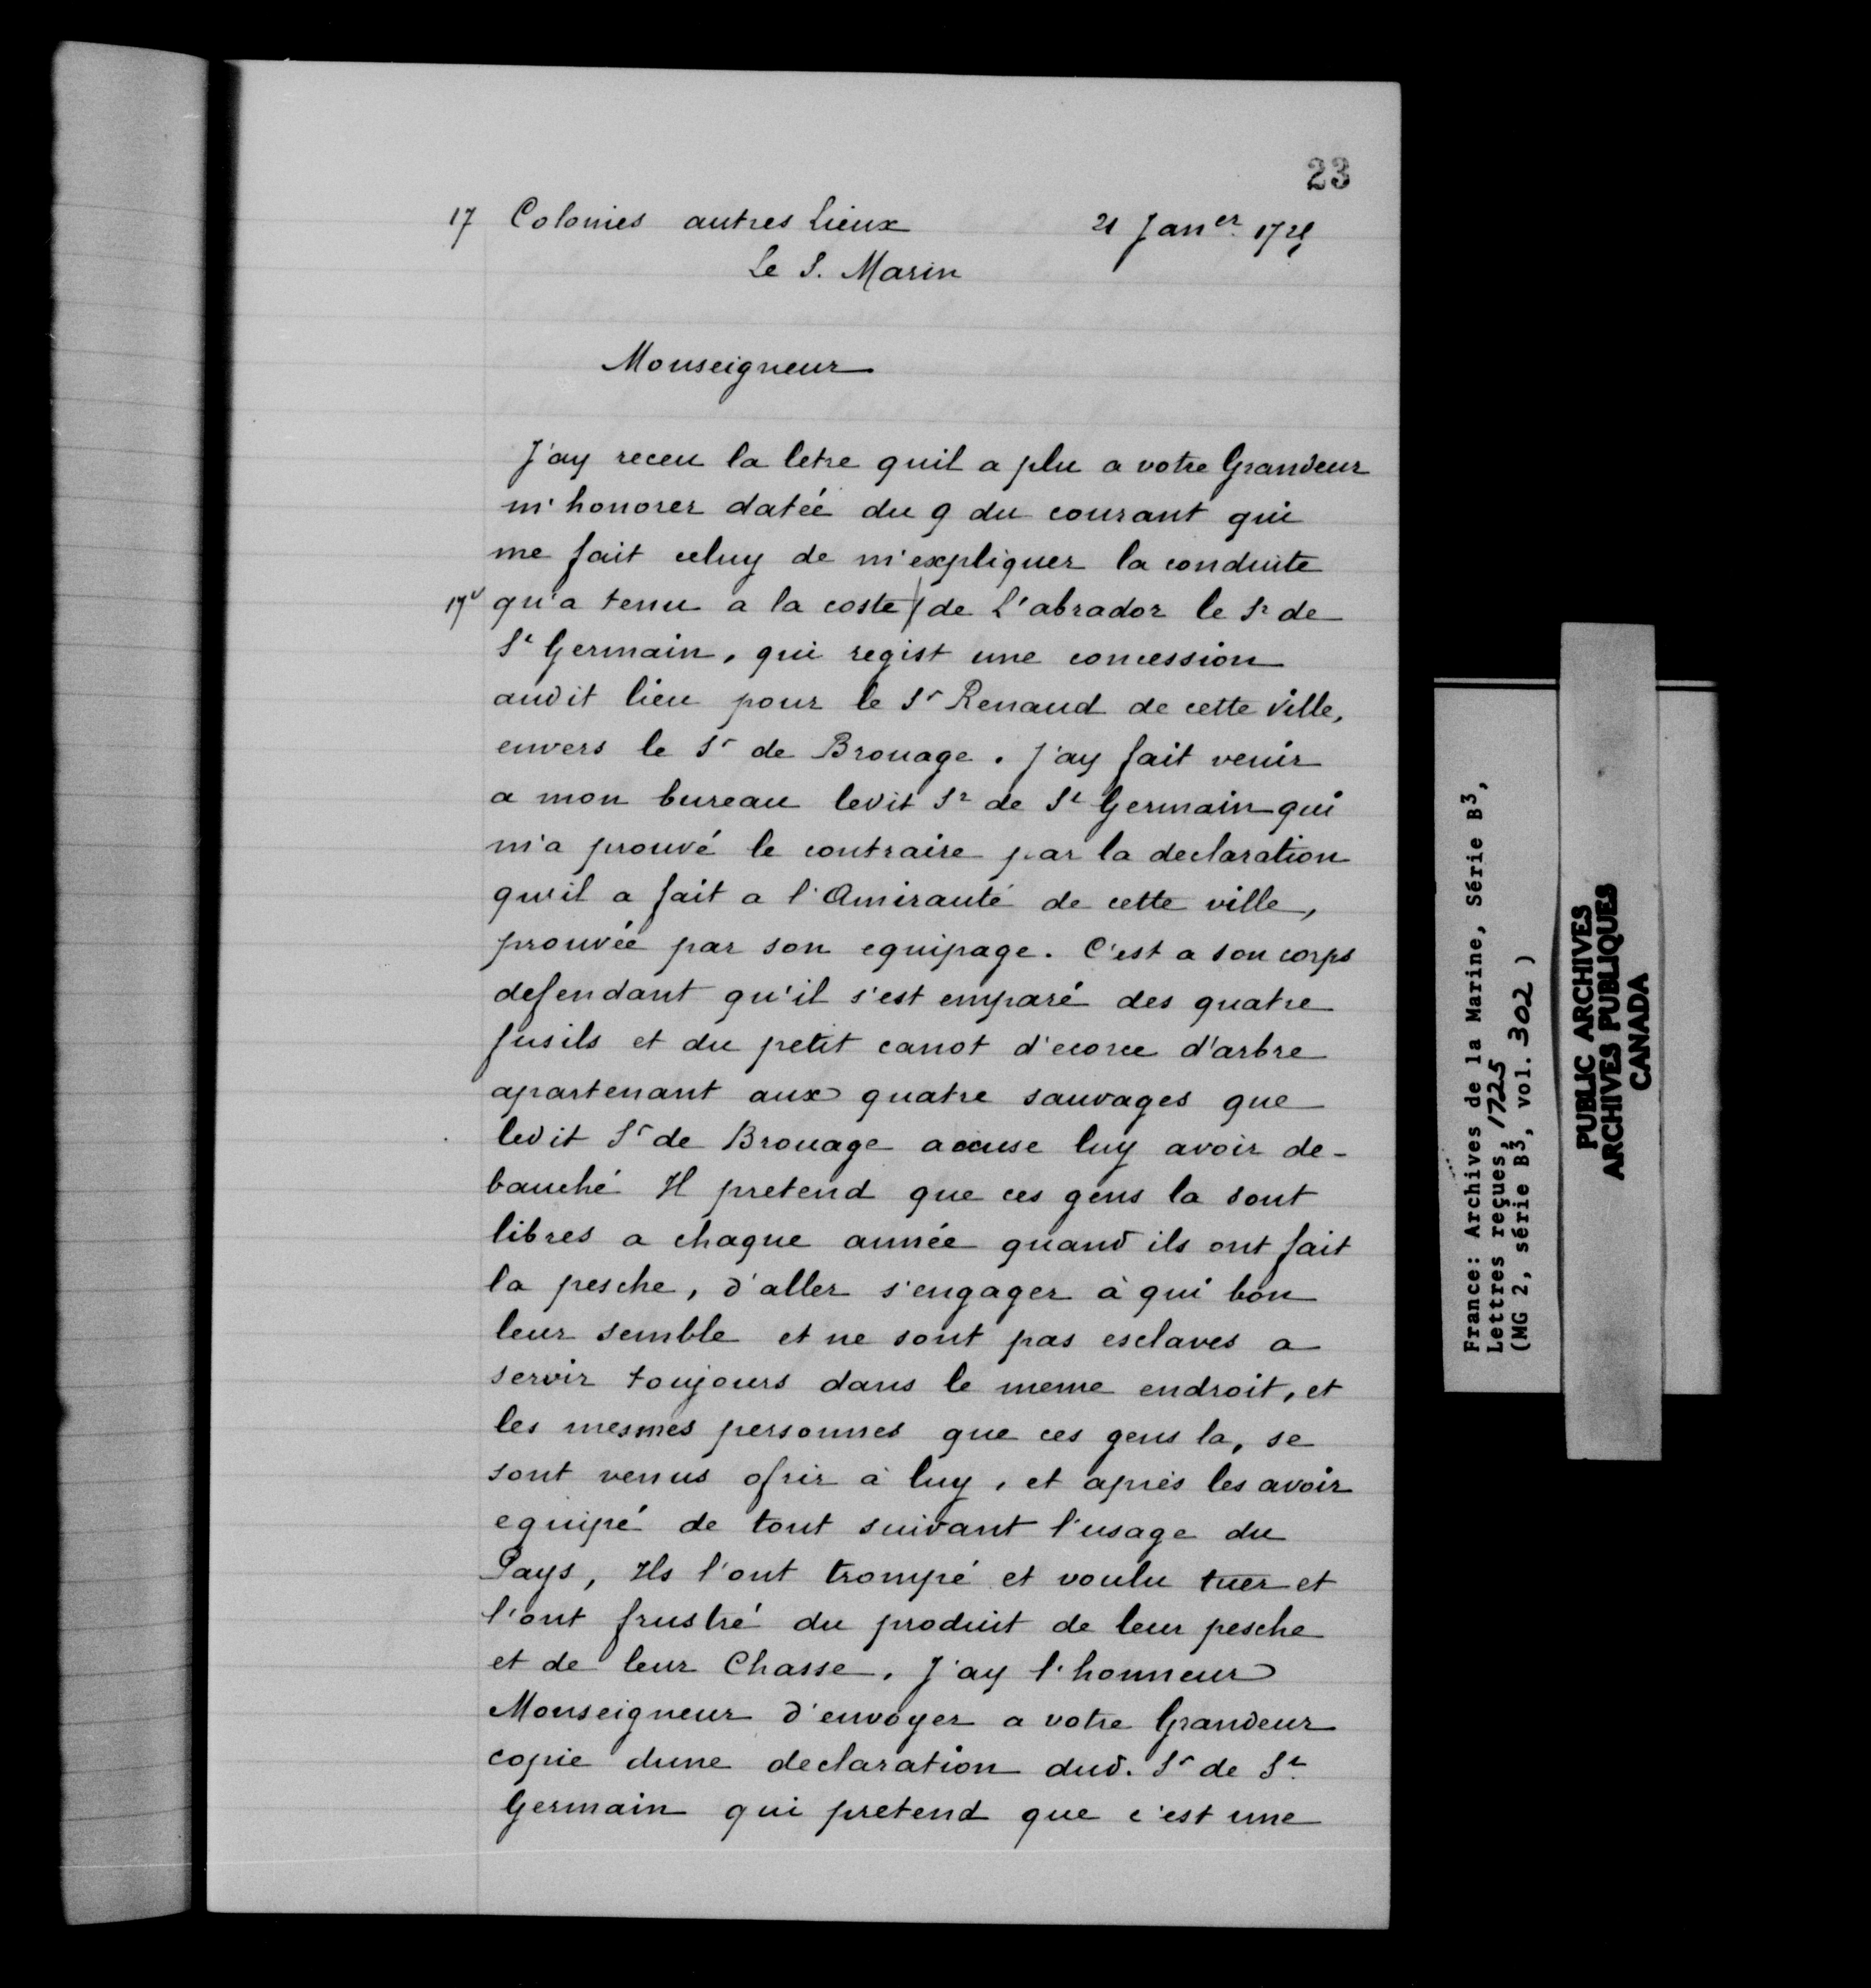 23
17 Colonies autres Lieux 21 Jan.er 1725
Le S. Marin
Monseigneur
J'ay receu la letre quil a plu a votre Grandeur
m'honorer datée du 9 du courant qui
me fait celuy de m'expliquer la conduite
17v qu'a tenu a la coste / de L'abrador le Sr de
St Germain, qui regist une concession
audit lieu pour le Sr Renaud de cette ville,
envers le Sr de Brouage. J'ay fait venir
a mon bureau ledit Sr de St Germain qui
m'a prouvé le contraire par la declaration
qu'il a fait a l'Amirauté de cette ville,
prouvée par son equipage. C'est a son corps
defendant qu'il s'est emparé des quatre
fusils et du petit canot d'ecorce d'arbre
apartenant aux quatre sauvages que
ledit Sr de Brouage accuse luy avoir de-
bauché Il pretend que ces gens la sont
libres a chaque année quand ils ont fait
la pesche, d'aller s'engager à qui bon
leur semble et ne sont pas esclaves a
servir toujours dans le meme endroit, et
les mesmes personnes que ces gens la, se
sont venus ofrir à luy, et après les avoir
equipé de tout suivant l'usage du
Pays, Ils l'ont trompé et voulu tuer et
l'ont frustré du produit de leur pesche
et de leur Chasse. J'ay l'honneur
Monseigneur d'envoyer a votre Grandeur
copie dune declaration dud. Sr de St
Germain qui pretend que c'est une
France: Archives de la Marine, Série B3,
Lettres reçues, 1725
(MG 2, série B3, vol. 302 )
PUBLIC ARCHIVES
ARCHIVES PUBLIQUES
CANADA